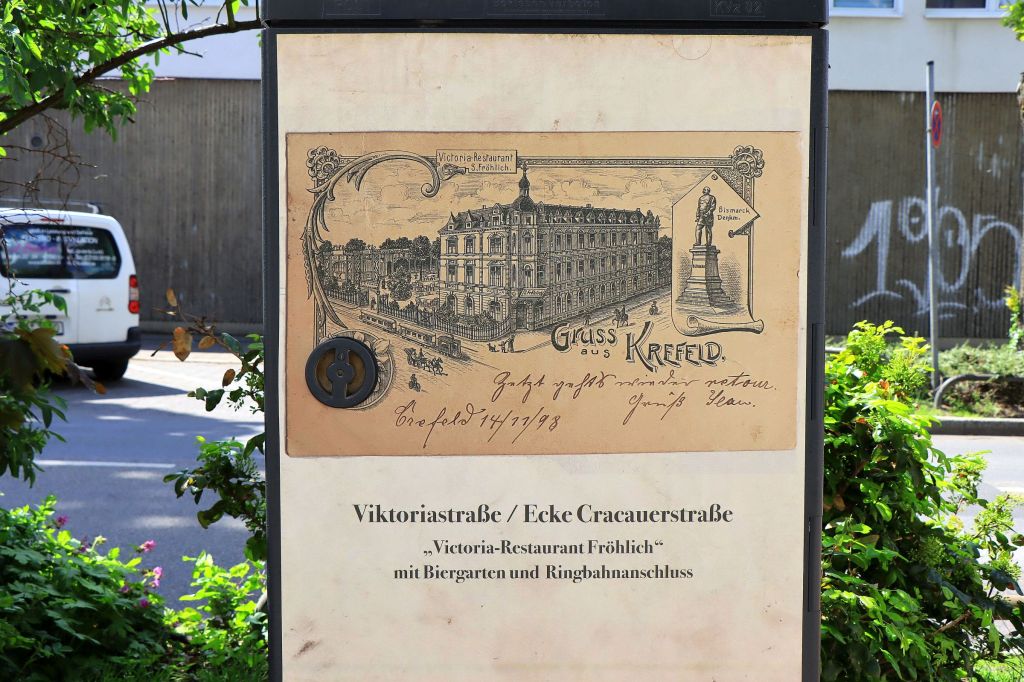 KVz 82
Victoria-Restaurant
S. Fröhlich.
Bismarck
Denkm.
Gruss
aus
Krefeld.
Jetzt gehts wieder retour.
Gruß
Crefeld 14/11/98
Viktoriastraße / Ecke Cracauerstraße
„Victoria-Restaurant Fröhlich“
mit Biergarten und Ringbahnanschluss